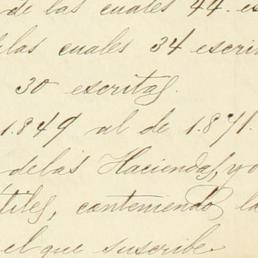 de las cuales 44. es
delas cuales 34 escri
30 escritas.
1.849 al de 1.871.
delas Haciendas, y o
tiles, conteniendo la
el que suscribe